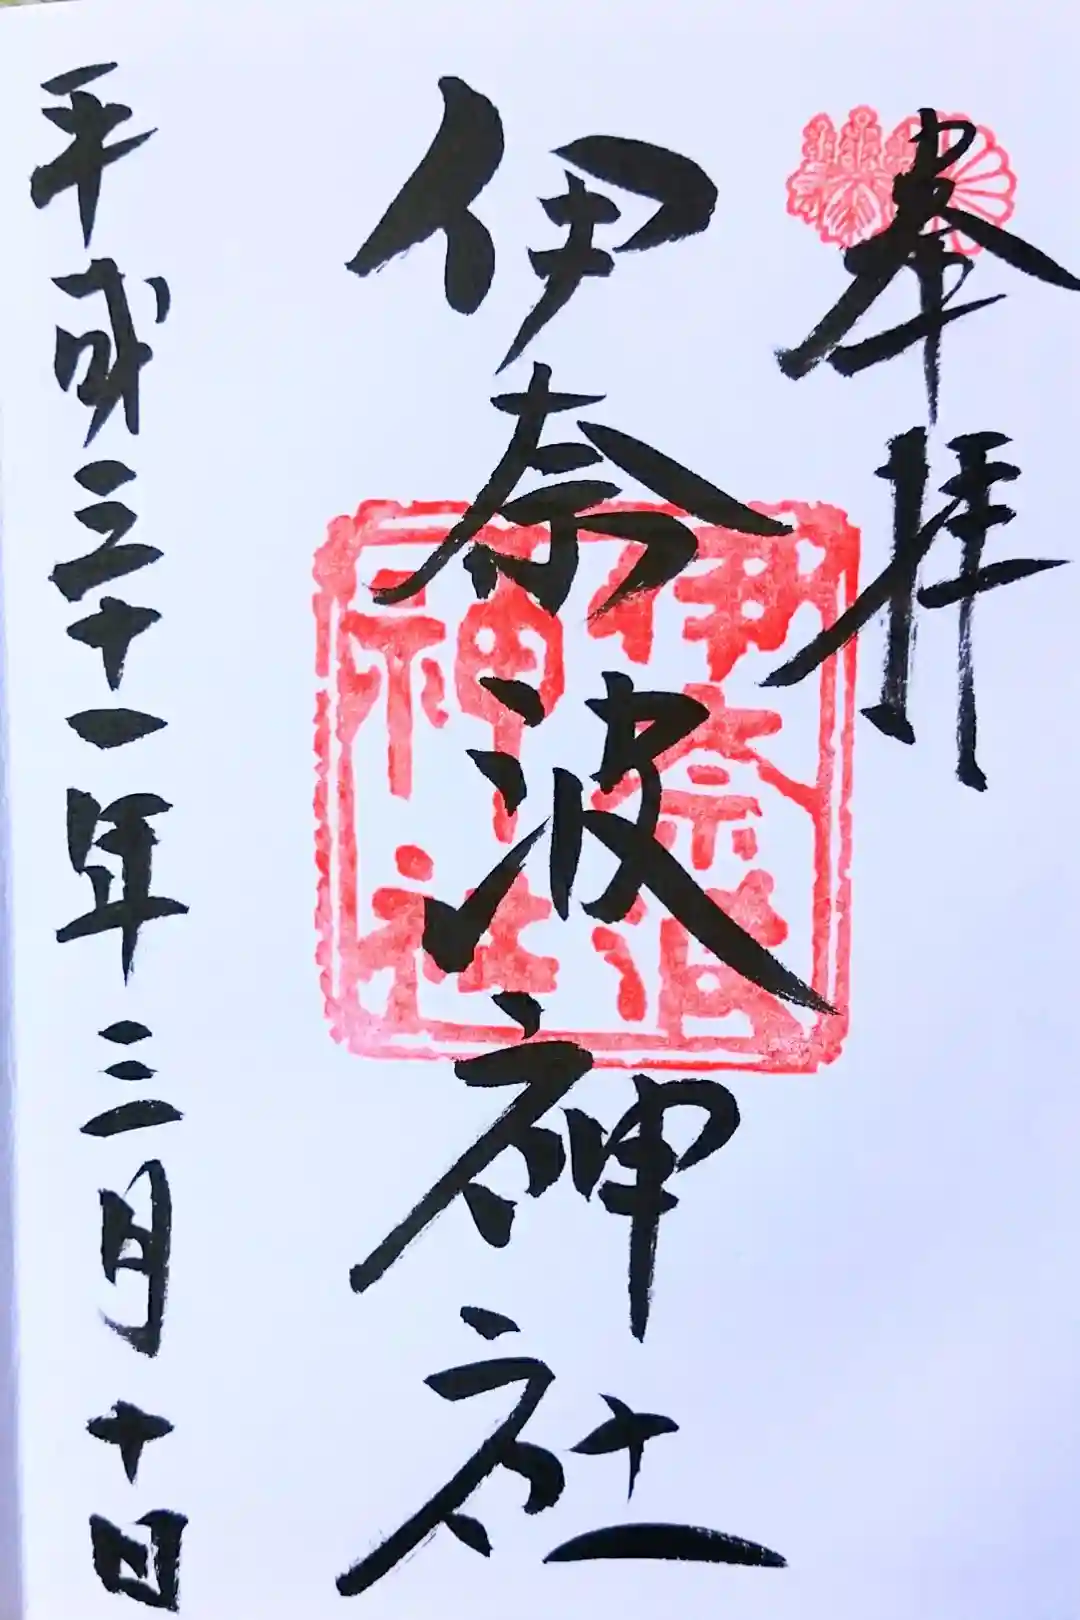 奉拝
伊奈波神社
伊奈波
神社
平成三十一年三月十日